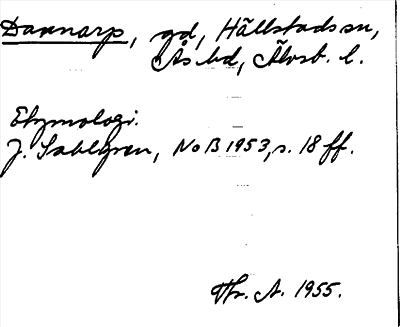 Dannarp, gd, Hällstads sn,
Ås hd, Älvsb. l.
Etymologi.
J. Sahlgren, NoB 1953, s. 18 ff.
A. 1955.